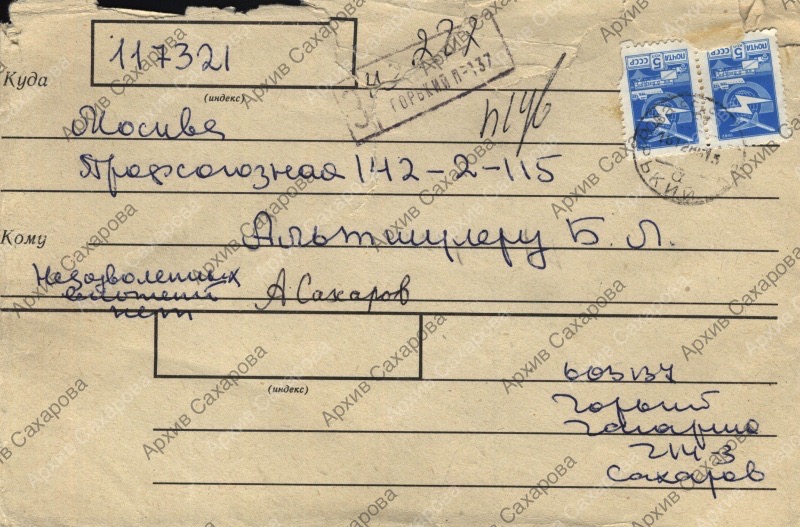 117321
Куда
(индекс)
и 237
З
ГОРЬКИЙ П-137
ПОЧТА СССР 5
ПОЧТА СССР 5
Москва
Профсоюзная 142-2-115
Кому
Альтшулеру Б. Л.
Недозволенных
вложений
нет
А Сахаров
(индекс)
603137
Горький
Гагарина
214-3
Сахаров
Архив Сахарова